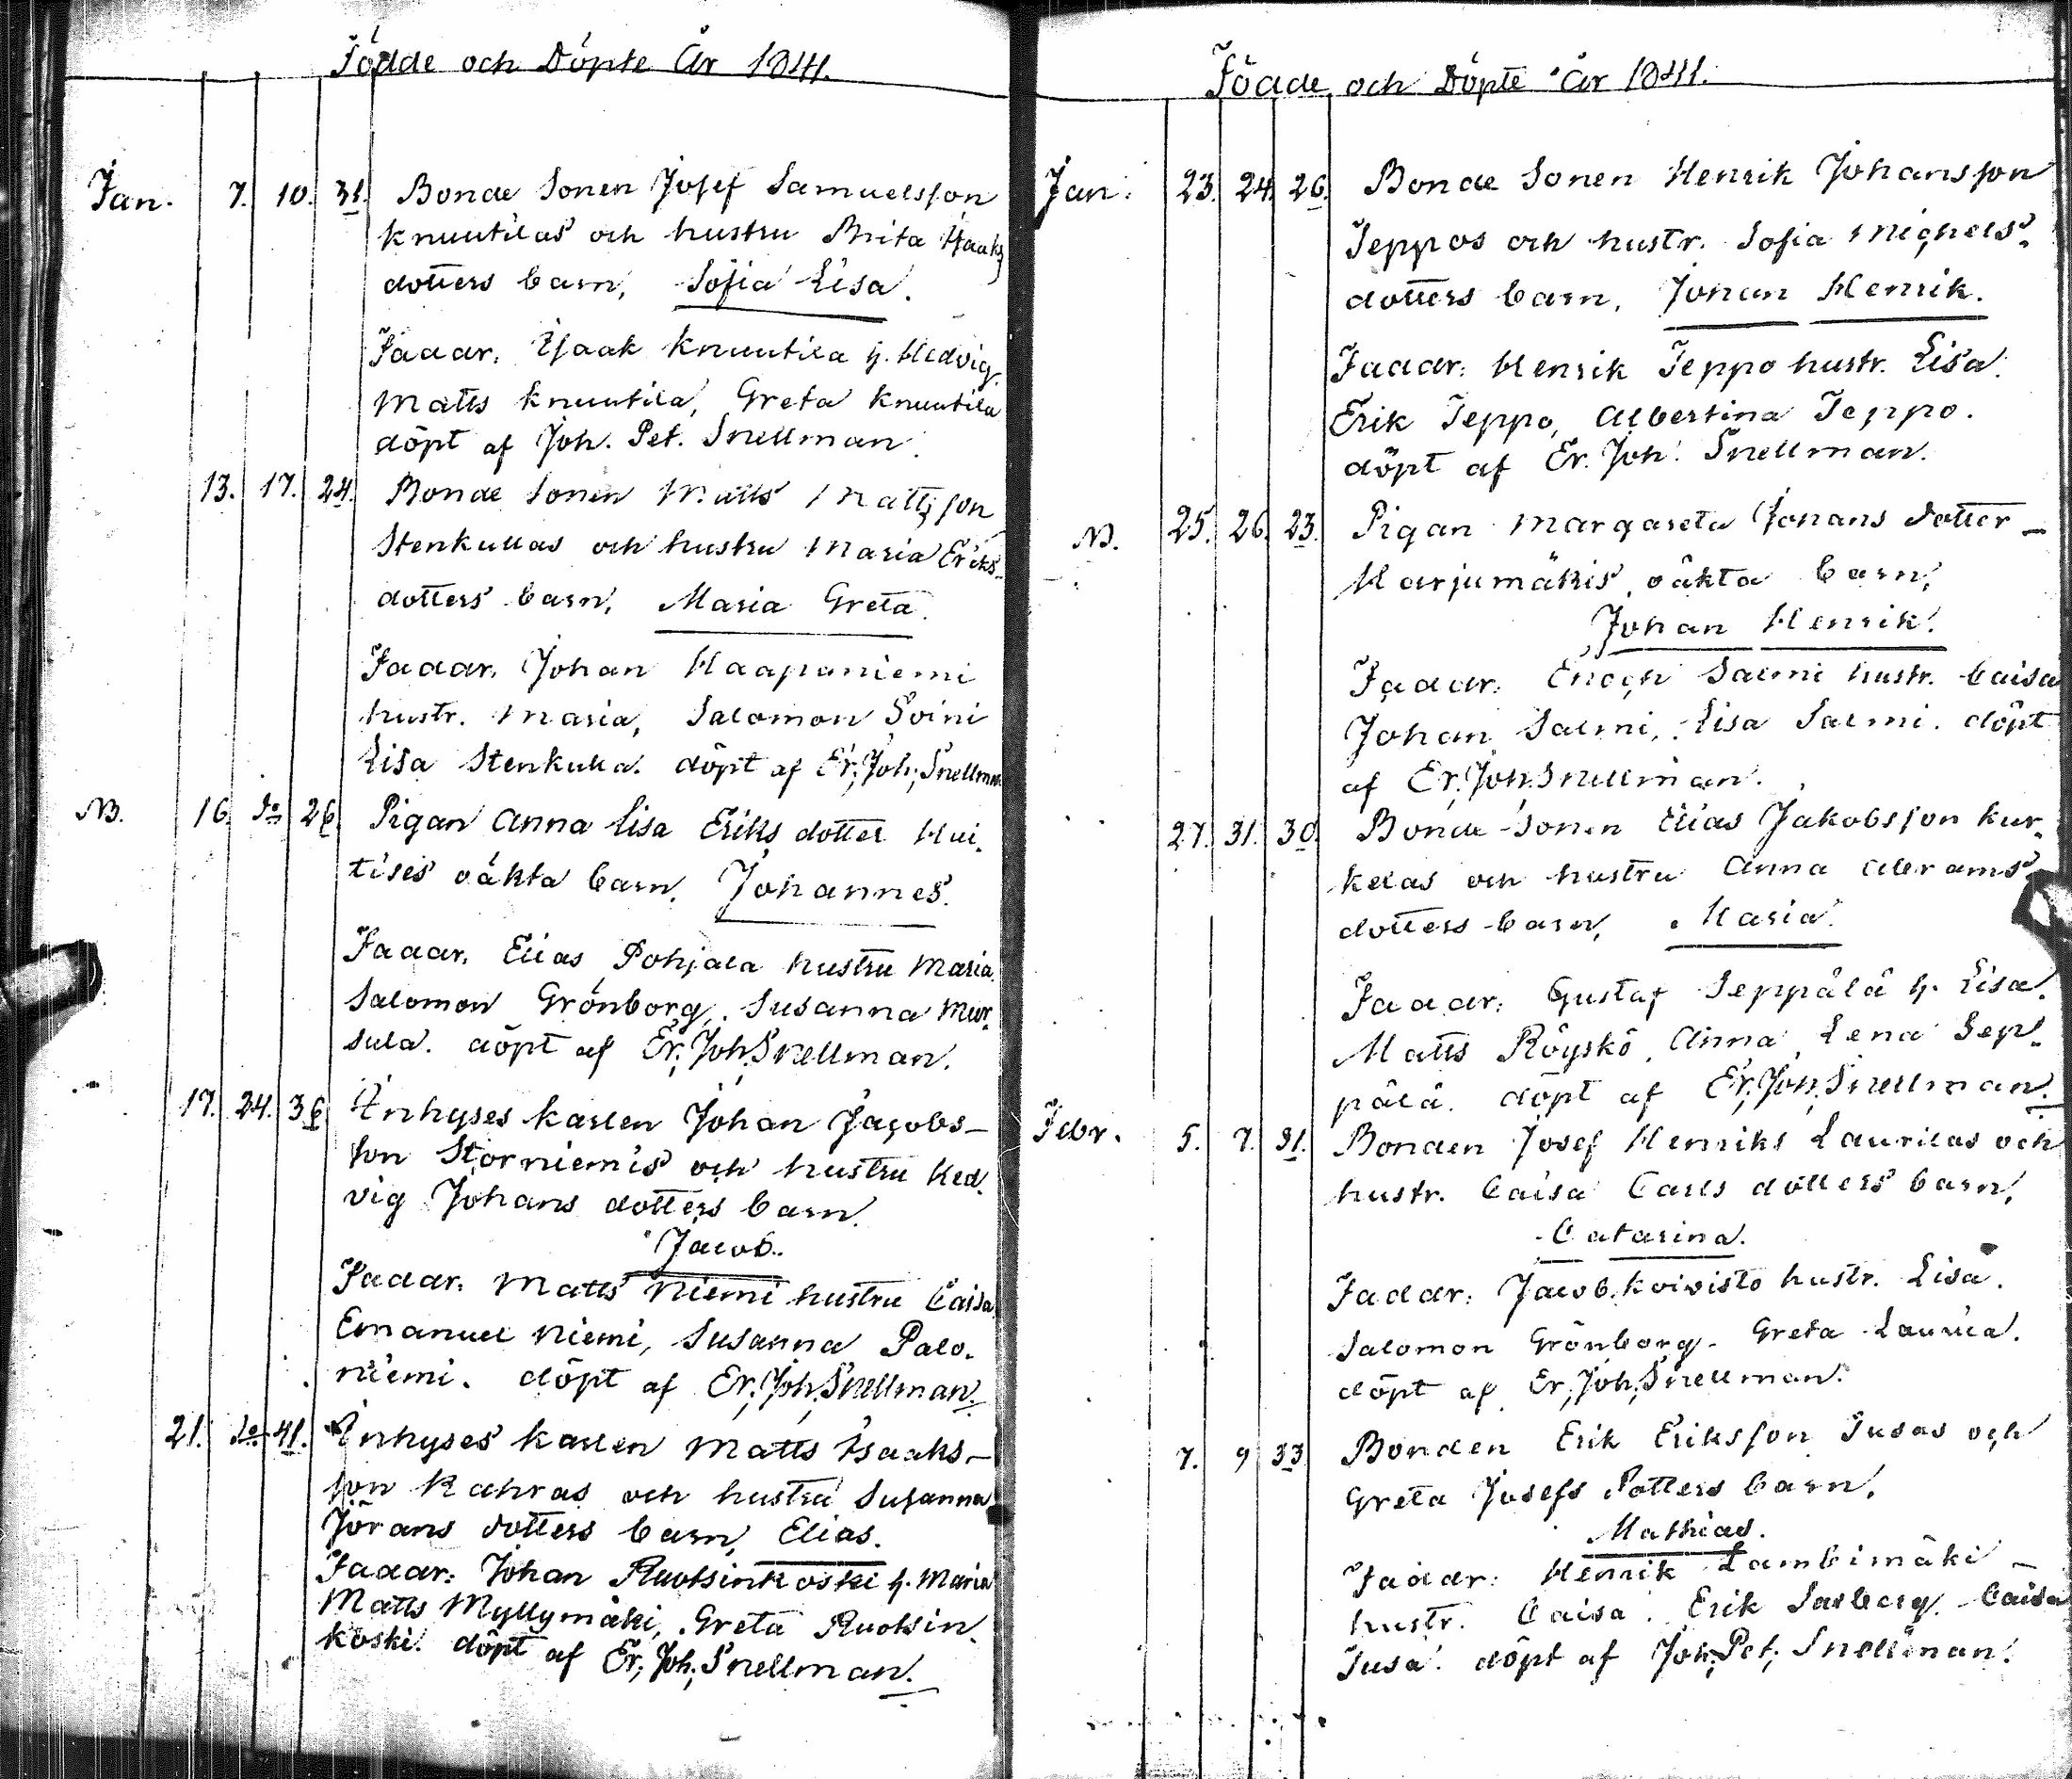 Födde och Döpte År 1841.
Jan. 7. 10. 31. Bonde Sonen Josef Samuelsson
Knuutilas och hustru Brita Isaaks
dotters barn, Sofia Lisa.
Faddr. Isaak Knuutila h. Hedvig.
Matts Knuutila, Greta Knuutila
döpt af Joh. Pet. Snellman.
13. 17. 24. Bonde Sonen Matts Mattsson
Stenkullas och hustru Maria Eriks-
dotters barn, Maria Greta.
Faddr. Johan Haapaniemi
hustr. Maria, Salomon Soini
Lisa Stenkulla. döpt af Er. Joh. Snellman
NB. 16. do 26. Pigan Anna Lisa Eriks dotter Hui-
tises oäkta barn. Johannes.
Faddr. Elias Pohjala hustru Maria.
Salomon Grönborg. Susanna Mur-
sula. döpt af Er. Joh. Snellman.
17. 24. 36 Inhyses karlen Johan Jacobs-
son Storniemis och hustru Hed-
vig Johans dotters barn.
Jacob.
Faddr. Matts Niemi hustru Caisa
Emanuel Niemi, Susanna Palo-
niemi. döpt af Er. Joh. Snellman.
21. do 41. Inhyses karlen Matts Isaaks-
son Kahras och hustru Susanna
Jörans dotters barn, Elias.
Faddr: Johan Ruotsinkoski h. Maria
Matts Myllymäki, Greta Ruotsin-
koski. döpt af Er. Joh. Snellman.
Födde och Döpte År 1841.
Jan. 23. 24. 26. Bonde Sonen Henrik Johansson
Jeppos och hustr. Sofia Michels-
dotters barn, Johan Henrik.
Faddr: Henrik Jeppo hustr. Lisa.
Erik Jeppo, Albertina Jeppo.
döpt af Er. Joh. Snellman.
NB. 25. 26. 23. Pigan Margareta Johans dotter-
Harjumäkis oäkta barn,
Johan Henrik.
Faddr: Enoch Salmi hustr. Caisa
Johan Salmi, Lisa Salmi. döpt
af Er. Joh. Snellman.
27. 31. 30. Bonde Sonen Elias Jakobsson Kur-
kelas och hustru Anna Abrams-
dotters barn, Maria.
Faddr: Gustaf Seppälä h. Lisa.
Matts Röyskö, Anna Lena Sep-
pälä. döpt af Er. Joh. Snellman.
Febr. 5. 7. 31. Bonden Josef Henriks Laurilas och
hustr. Caisa Carls dotters barn,
Catarina.
Faddr: Jacob Koivisto hustr. Lisa.
Salomon Grönborg. Greta Laurila.
döpt af Er. Joh. Snellman.
7. 9 33 Bonden Erik Eriksson Jusas och
Greta Josefs dotters barn,
Mathias.
Faddr: Henrik Lambimäki
hustr. Caisa. Erik Sarberg. Caisa
Jusa. döpt af Joh. Pet. Snellman.